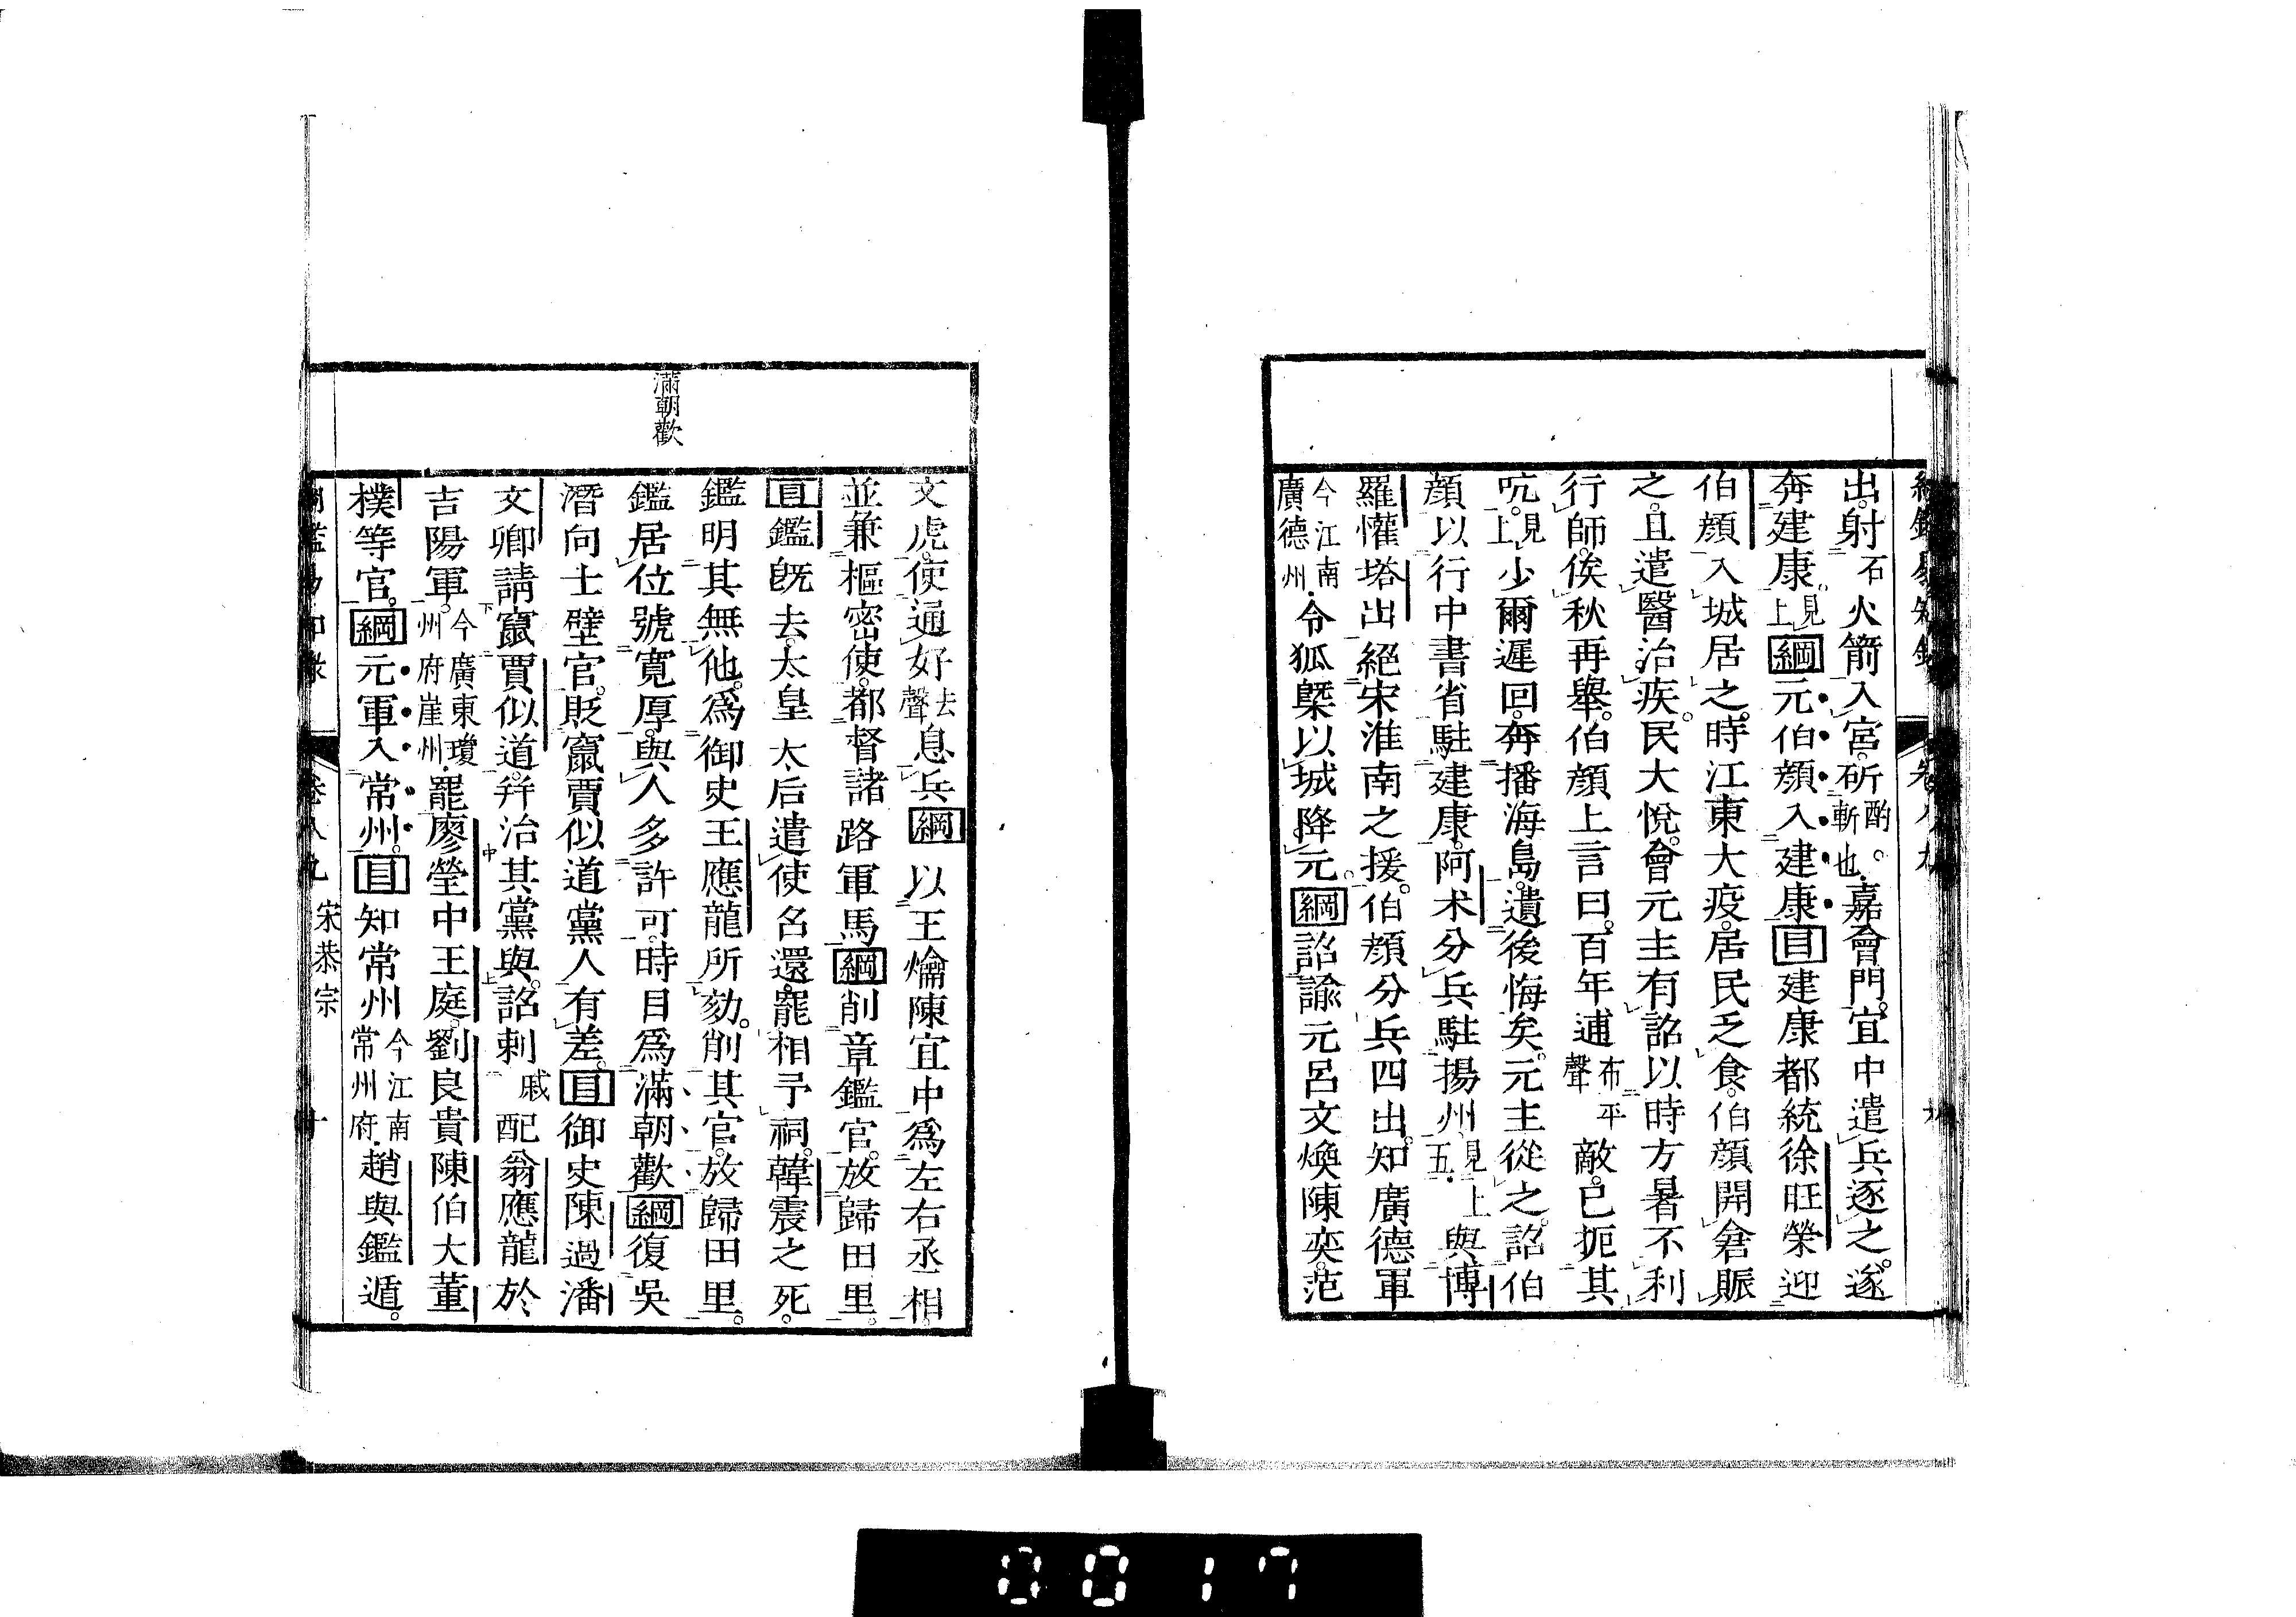 出。射石火箭入宮。斫酌。斬也。嘉會門。宜中遣兵逐之。遂
奔建康。見上綱元伯顏入建康目建康都統徐旺榮迎
伯顏入城居之。時江東大疫。居民乏食。伯顏開倉賑
之。且遣醫治疾。民大悅。會元主有詔以時方暑不利
行師。俟秋再舉。伯顏上言曰。百年逋布平聲敵。已扼其
吭。見上少爾遲回。奔播海島。遺後悔矣。元主從之。詔伯
顏以行中書省駐建康。阿术分兵駐揚州。見上五與博
羅懽塔出絕宋淮南之援。伯顏分兵四出。知廣德軍
今江南廣德州令狐槩以城降元。綱詔諭元呂文煥陳奕。范
九
文虎。使通好去聲息兵綱以王爚陳宜中為左右丞相。
並兼樞密使。都督諸路軍馬綱削章鑑官。放歸田里。
目鑑旣去。太皇太后遣使召還。罷相予祠。韓震之死。
鑑明其無他。為御史王應龍所劾。削其官。放歸田里。
鑑居位號寬厚。與人多許可。時目為滿朝歡綱復吳
潛向士璧官。貶竄賈似道黨人有差。目御史陳過潘
文卿請竄賈似道。并治其黨與。詔刺戚配翁應龍於
吉陽軍。今廣東瓊州府崖州罷廖瑩中王庭。劉良貴陳伯大董
樸等官。綱元軍入常州。目知常州今江南常州府趙與鑑遁。
滿朝歡
宋恭宗
十